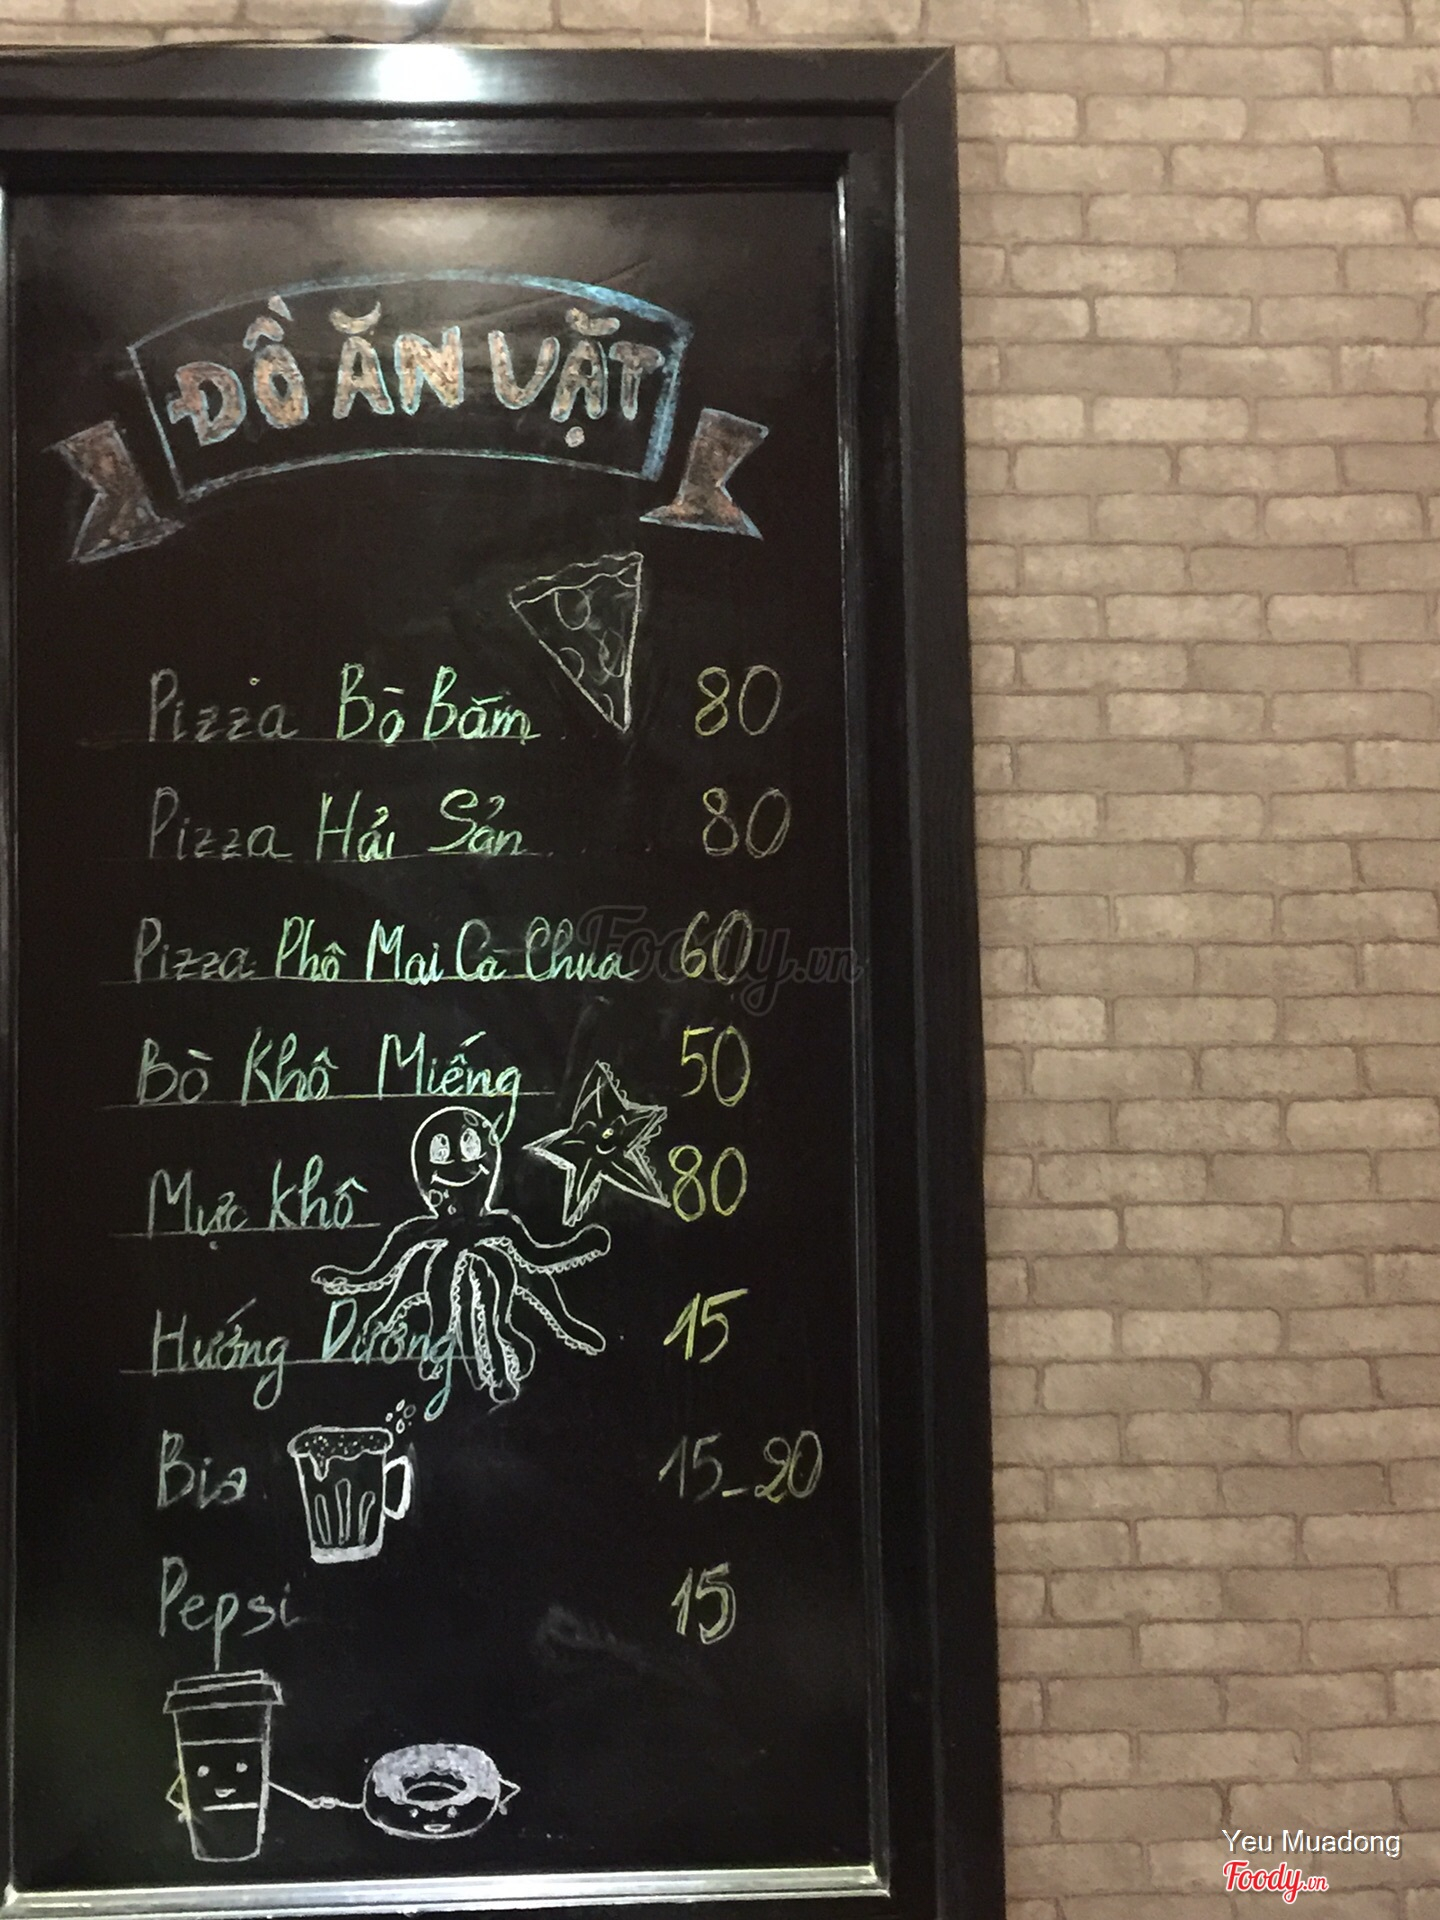 ĐỒ ĂN VẶT
Pizza Bò Băm 80
Pizza Hải Sản 80
Pizza Phô Mai Cà Chua 60
Bò Khô Miếng 50
Mực Khô 80
Hướng Dương 15
Bia 15-20
Pepsi 15
Foody.vn
Yeu Muadong
Foody.vn